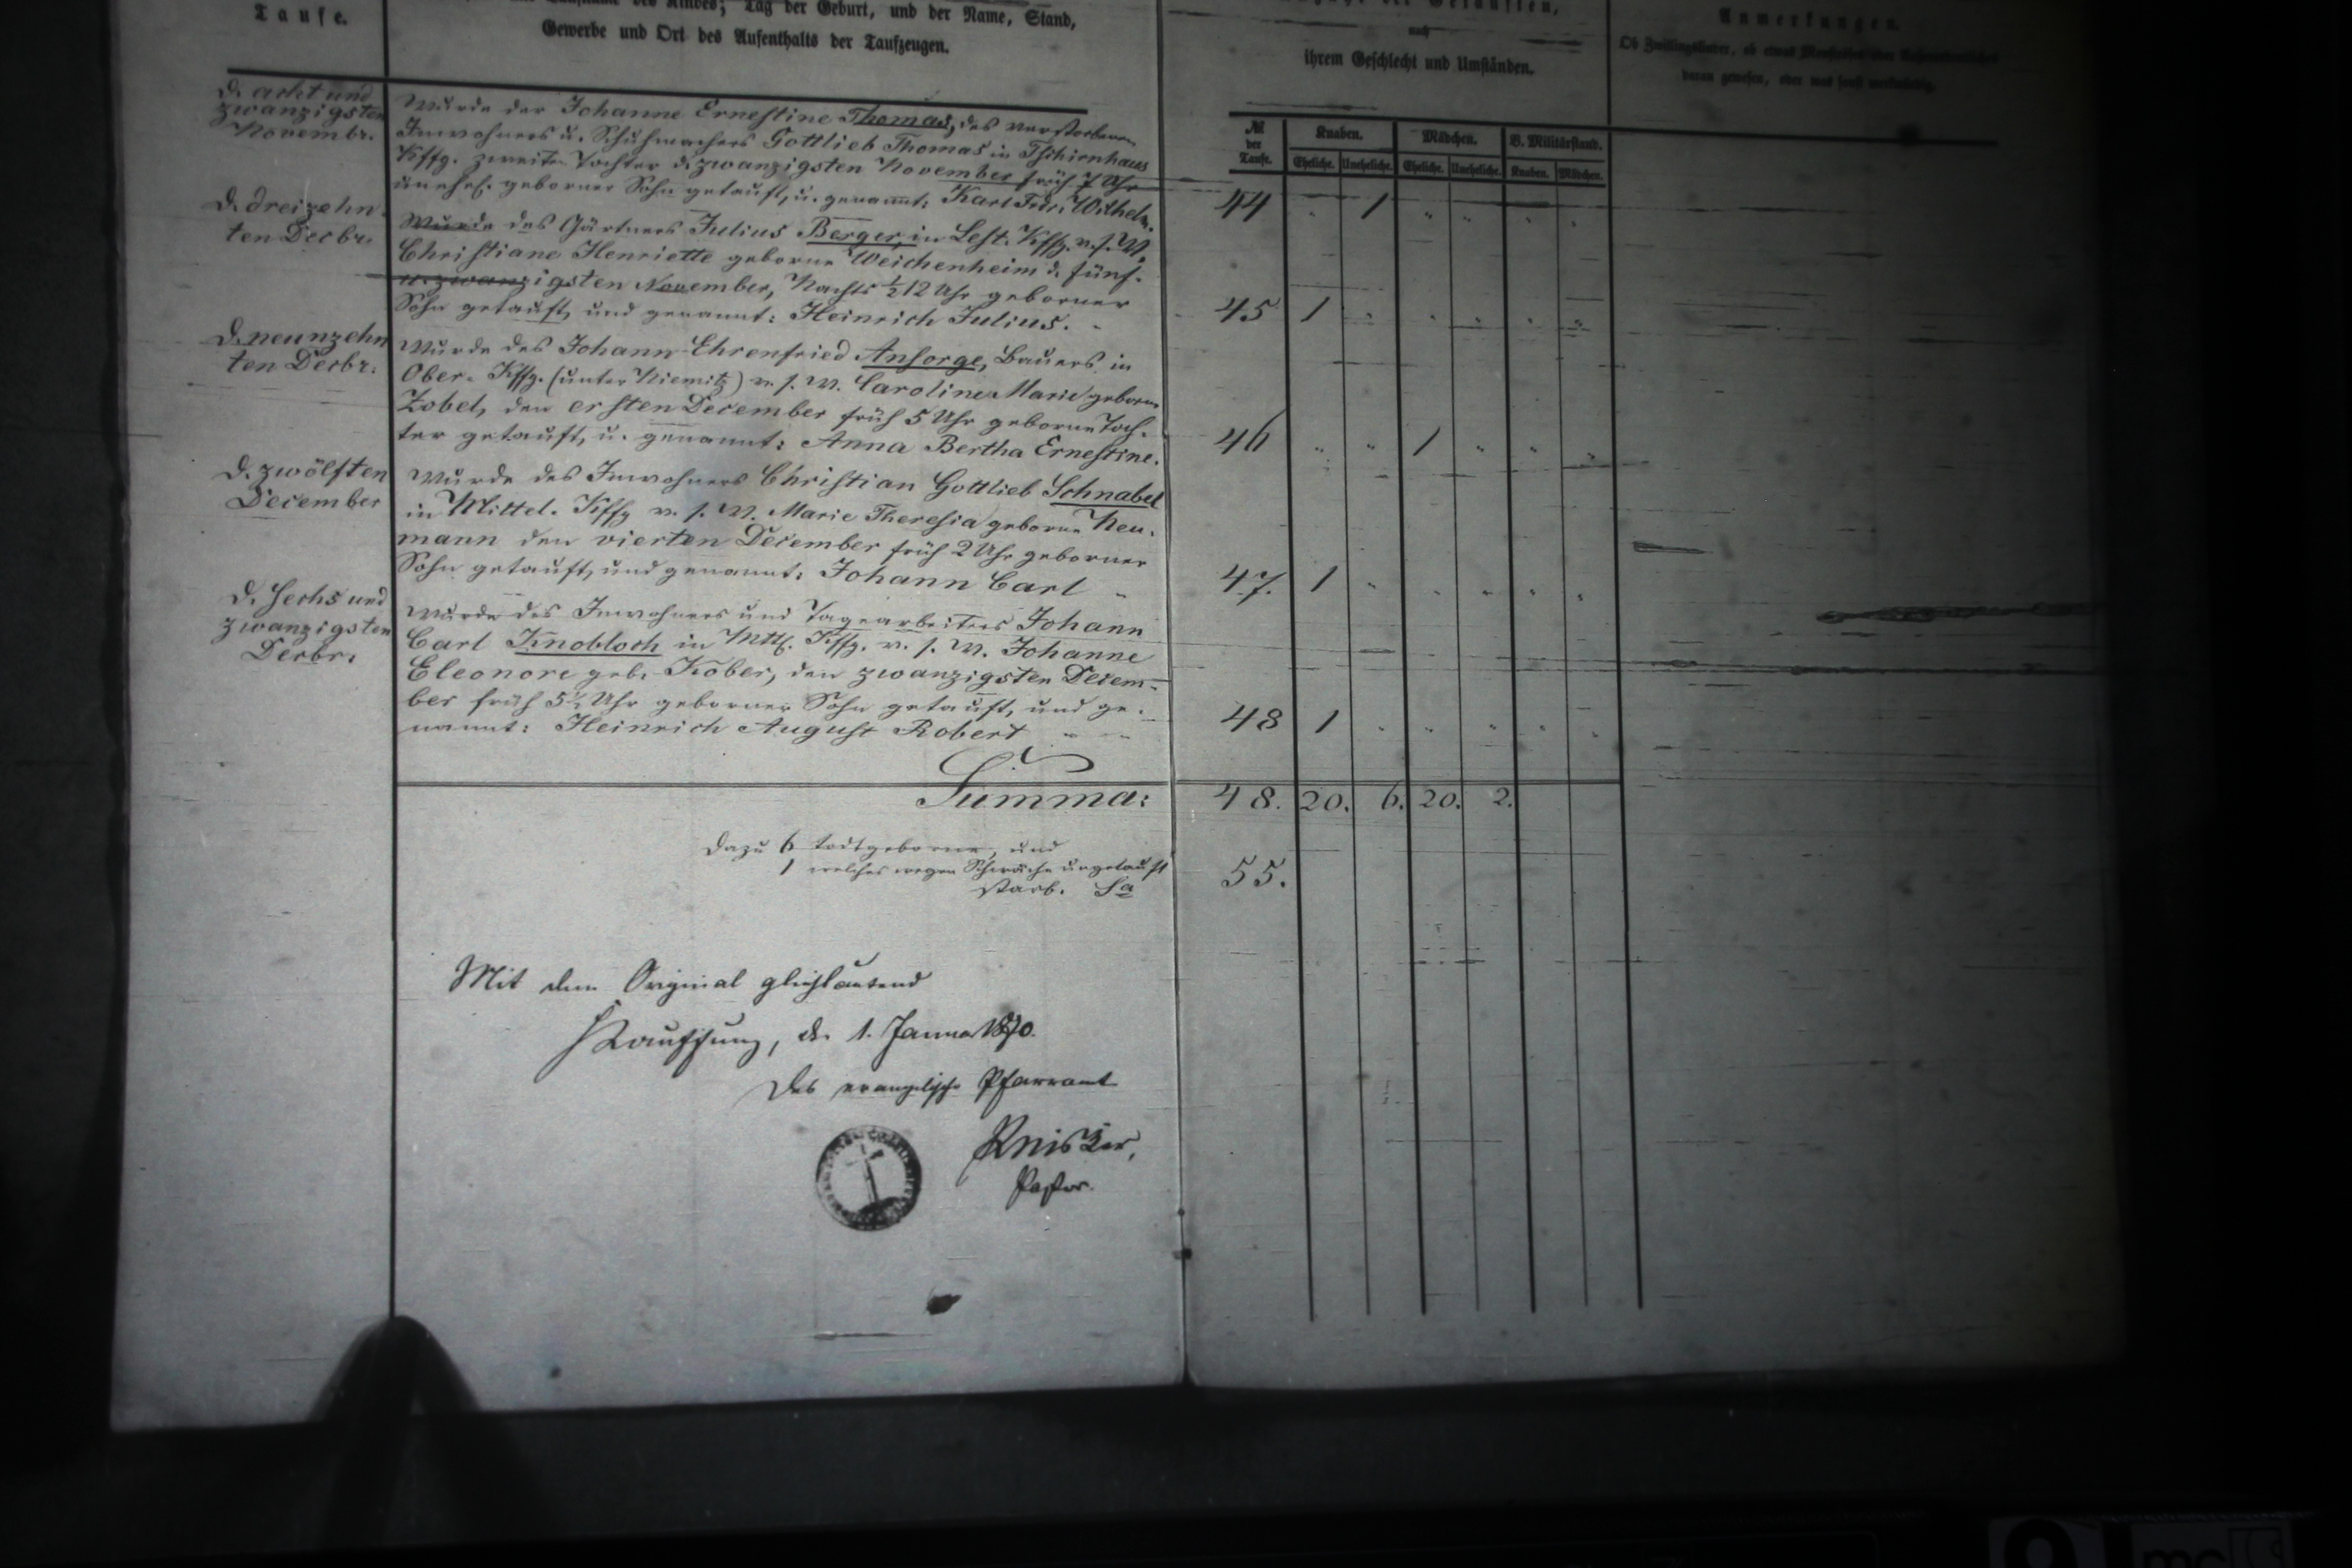 Taufe.
des Kindes; Tag der Geburt, und der Name, Stand,
Gewerbe und Ort des Aufenthalts der Taufzeugen.
der Getauften,
nach
ihrem Geschlecht und Umständen.
Anmerkungen.
Ob Zwillingskinder, ob etwas
daran gewesen, oder was sonst merkwürdig.
№ der Taufe.
Knaben. Mädchen. B. Militärstand.
Eheliche. Uneheliche. Eheliche. Uneheliche. Knaben. Mädchen.
d. acht und
zwanzigsten
Novembr.
Wurde der Johanne Ernestine Thomas, des verstorbenen
Inwohners u. Schuhmachers Gottlieb Thomas in Tschirnhaus
Kffg. zweiten Tochter d. zwanzigsten November früh 7 Uhr
unehel. geborner Sohn getauft, u. genannt: Karl Fedr. Wilhelm.
44 " 1 " " " "
d. dreizehn-
ten Decbr.
Wurde des Gärtners Julius Berger, in Lest. Kffg. v. s. W.
Christiane Henriette geborne Weichenheim d. fünf-
u. zwanzigsten November, Nachts ½12 Uhr geborner
Sohn getauft, und genannt: Heinrich Julius. "
45 1 " " " " "
d. neunzehn
ten Decbr.
Wurde des Johann Ehrenfried Ansorge, Bauers in
Ober-Kffg. (unter Niemitz) v. s. W. Caroline Marie geborne
Zobel, den ersten December früh 5 Uhr geborne Toch-
ter getauft, u. genannt: Anna Bertha Ernestine.
46 " " 1 " " "
d. zwölften
December
Wurde des Inwohners Christian Gottlieb Schnabel
in Mittel-Kffg v. s. W. Marie Theresia geborne Neu-
mann den vierten December früh 2 Uhr geborner
Sohn getauft, und genannt: Johann Carl "
47. 1 " " " " "
d. sechs und
zwanzigsten
Decbr.
Wurde des Inwohners und Tagearbeiters Johann
Carl Knobloch in Mttl. Kffg. v. s. W. Johanne
Eleonore geb. Kober, den zwanzigsten Decem-
ber früh Uhr geborner Sohn getauft, und ge-
nannt: Heinrich August Robert " "
48 1 " " " " "
Summa: 48. 20. 6. 20. 2.
Dazu 6 todtgeborne, und
1 welches wegen Schwäche ungetauft
starb. Sa 55.
Mit dem Original gleichlautend
Kauffung, d. 1. Januar 1870.
Das evangelische Pfarramt
Pastor.